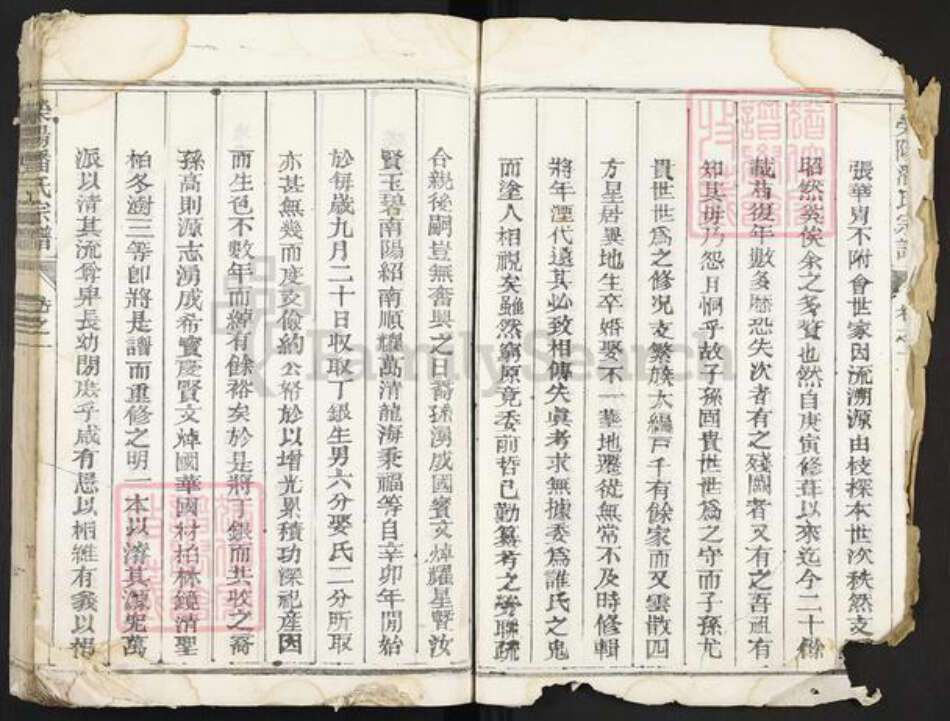 張華胄不附會世家因流溯源由枝探本世次秩然支
昭然奚俟余之多贅也然自庚寅修葺以來迄今二十餘
載若復年數多歷恐失次者有之殘闕者又有之吾祖有
知其毋乃怨且恫乎故子孫固貴世世為之守而子孫尤
貴世世為之修况支繁族大編戶千有餘家而又雲散四
方星居異地生卒婚娶不一塋地遷徙無常不及時修輯
將年湮代遠其必致相傳失眞考求無據委為誰氏之鬼
而塗人相視矣雖然窮原竟委前哲已勤纂考之勞聯疏
合親後嗣豈無蕃興之日裔孫湧成國賓文焯耀星賢汝
賢玉碧南陽紹南順耀萬清龍海秉福等自辛卯年開始
於每歲九月二十日收取丁銀生男六分娶氏二分所取
亦甚無幾而度支儉約公帑於以增光累積功深祀產因
而生色不數年而綽有餘裕矣於是將丁銀而共收之裔
孫高則源志湧成希賓慶賢文焯國華國材柏林鏡清聖
柏冬澍三等卽將是譜而重修之明一本以濬其源宛萬
派以清其流尊卑長幼閱庶乎咸有恩以相維有義以相
榮陽潘氏宗譜
卷之一
FamilySearch